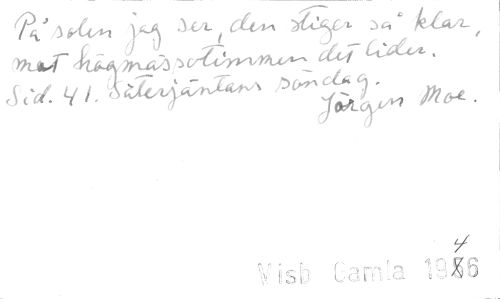 På solen jag ser, den stiger så klar,
mot högmässotimmen det lider.
Sid. 41. Säterjäntans söndag.
Jörgen Moe.
4
Visb Gamla 1966